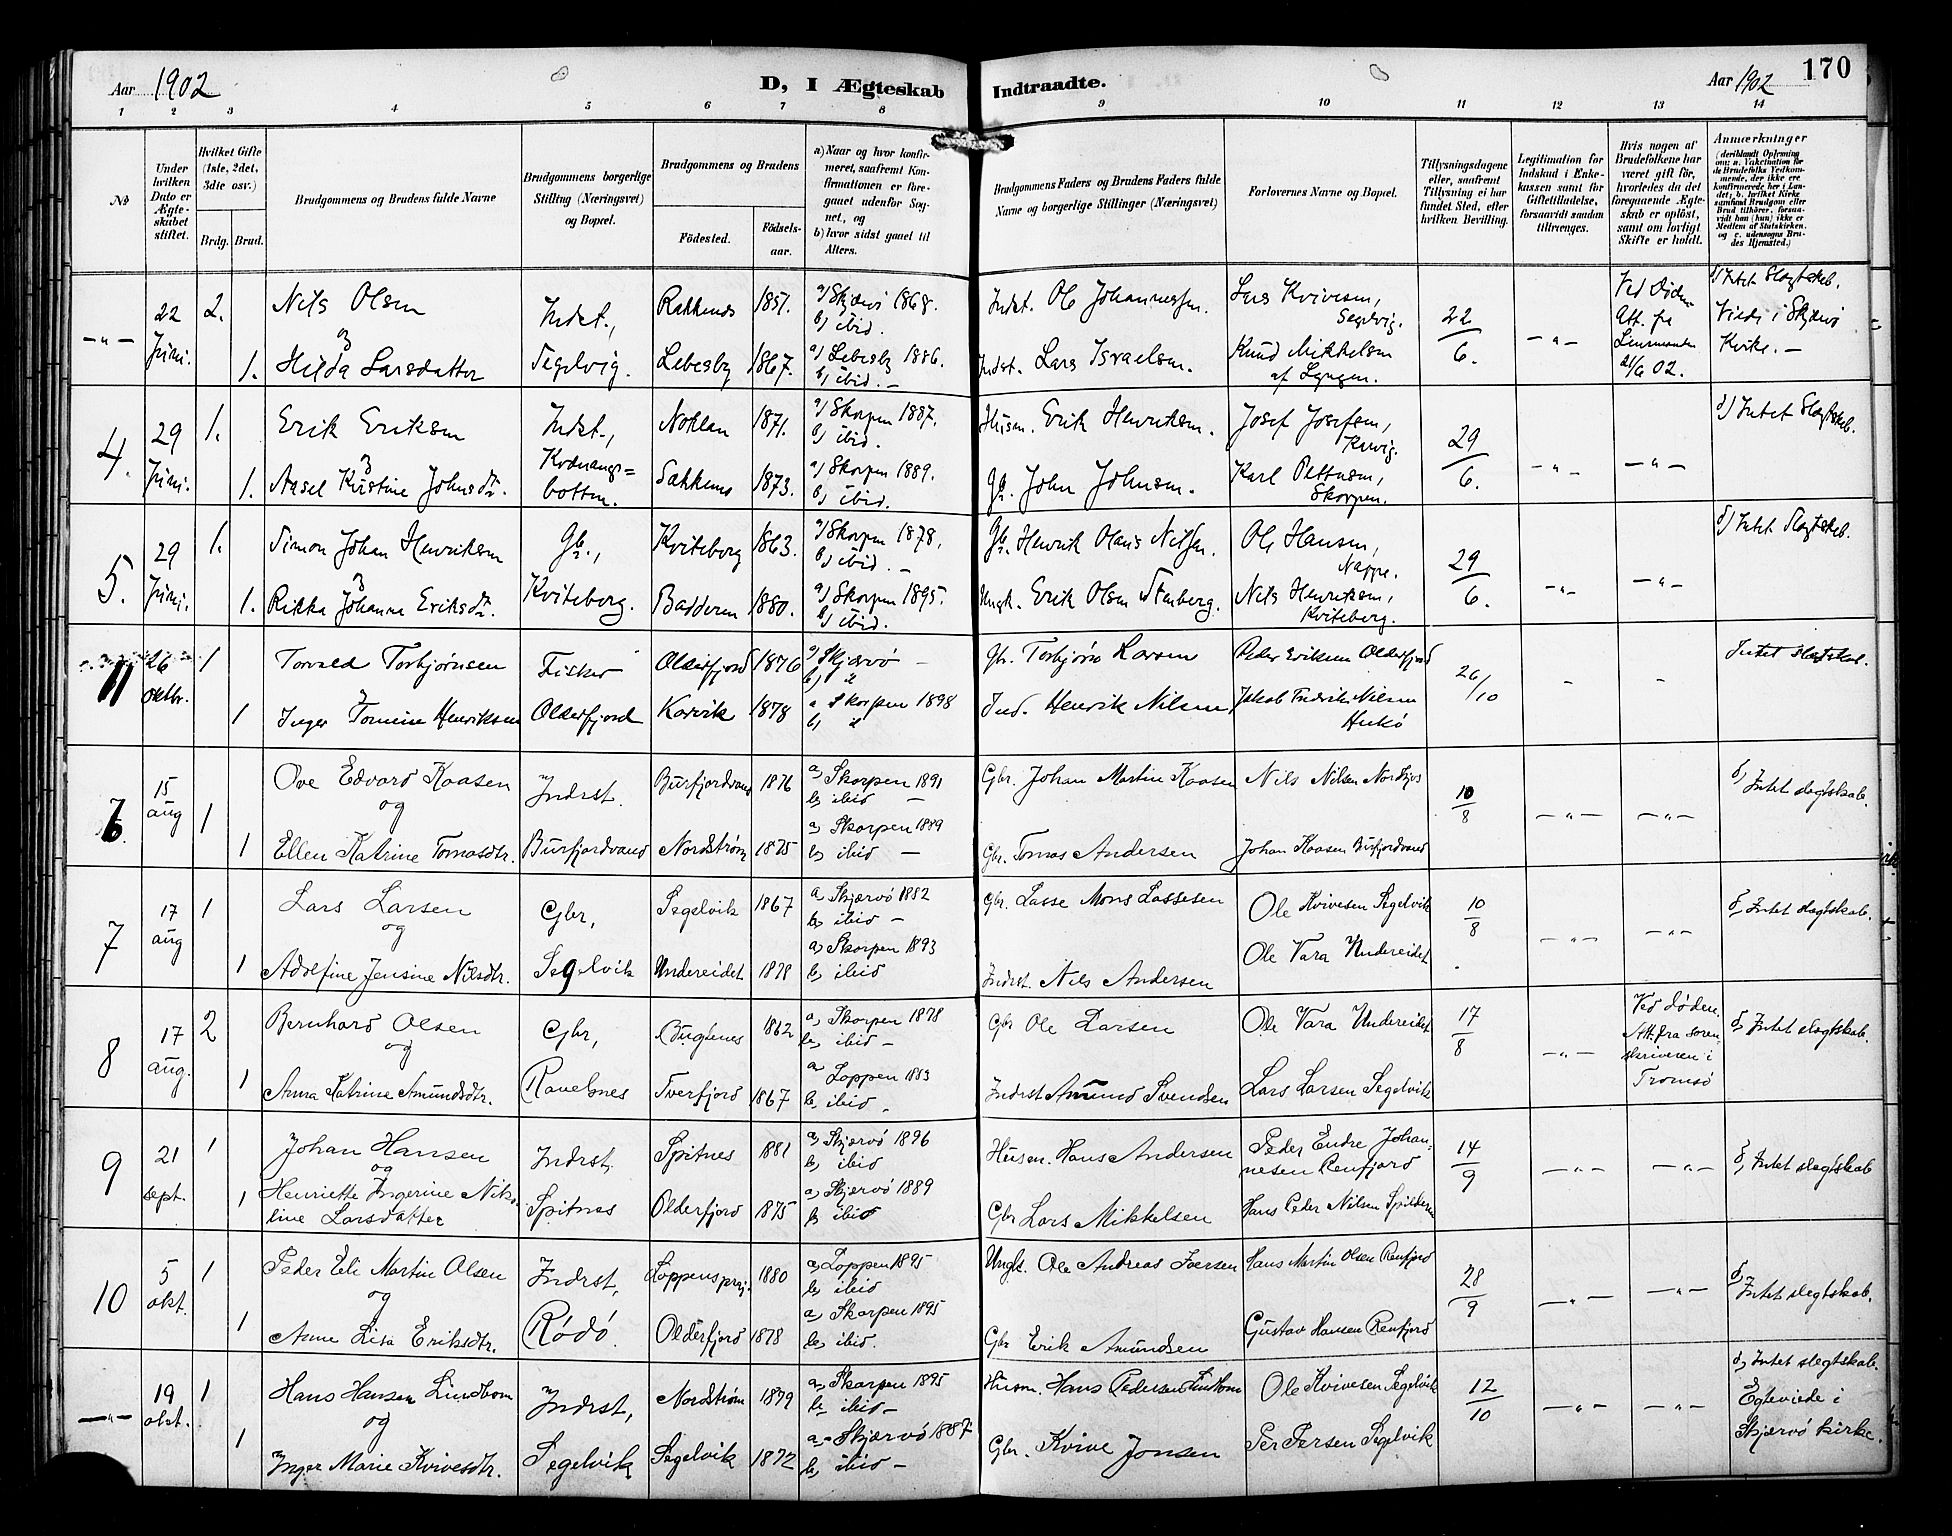 Aar 1902
D, I Ægteskab Indtraadte.
Aar 1902
170
1 2 3 4 5 6 7 8 9 10 11 12 13 14
No
Under hvilken Dato er Ægteskabet stiftet.
Hvilket Gifte (1ste, 2det, 3dte osv.)
Brdg. Brud.
Brudgommens og Brudens fulde Navne
Brudgommens borgerlige Stilling (Næringsvei) og Bopæl.
Brudgommens og Brudens
Fødested.
Fødselsaar.
a) Naar og hvor konfirmeret, saafremt Konfirmationen er foregaaet udenfor Sognet, og
b) hvor sidst gaaet til Alters.
Brudgommens Faders og Brudens Faders fulde Navne og borgerlige Stillinger (Næringsvei)
Forlovernes Navne og Bopæl.
Tillysningsdagene eller, saafremt Tillysning ei har fundet Sted, efter hvilken Bevilling.
Legitimation for Indskud i Enkekassen samt for Giftetilladelse, forsaavidt saadan tiltrænges.
Hvis nogen af Brudefolkene har været gift før, hvorledes da det foregaaende Ægteskab er opløst, samt om lovligt Skifte er holdt.
Anmærkninger
(deriblandt Oplysning om: a. Vakcination for de Brudefolks Vedkommende, der ikke ere konfirmerede her i Landet; b. hvilket Kirkesamfund Brudgom eller Brud tilhører, forsaavidt han (hun) ikke er Medlem af Statskirken. og c. udensogns Brudes Hjemsted.)
— " — 22 Juni. 2. Nils Olsen Indst., 1851. a) Skjervø 1868. b) ibid. Indst. Ole Johannessen. Lars Kvivesen, Segelvig. 22/6. — " — Ved Døden Att. fra 21/6 02. d) Intet Slagtskab. Viede i Skjervø Kirke. —
og
1. Hilda Larsdatter Segelvig. Lebesby 1867. a) Lebesby 1886. b) ibid. — Indst. Lars Israelsen. Knud Mikkelsen af Lyngen.
4. 29 Juni. 1. Erik Eriksen Indst., 1871. a) Skorpen 1887. b) ibid. Husm. Erik Henriksen. Josef Josefsen, 29/6. — " — — " — d) Intet Slagtskab.
og
1. Aasel Kristine Johnsdtr. Kvænangsbotten. 1873. a) Skorpen 1889. b) ibid. Gb. John Johnsen. Karl Skorpen.
5. 29 Juni. 1. Simon Johan Henriksen Gb., Kviteberg 1863. a) Skorpen 1878, b) ibid. — Gb. Henrik Olaus Nilsen. Ole Hansen, Nappe. 29/6. — " — — " — d) Intet Slagtskab.
og
1. Rikka Johanna Eriksdtr. Kviteberg. Badderen 1880. a) Skorpen 1895. b) ibid. Ungk. Erik Olsen Stenberg. Nils Henriksen, Kviteberg.
11 26 oktbr. 1 Torvald Torbjørnsen Fisker Olderfjord 1876 a) Skjærvø — b) " Gbr. Torbjørn Larsen Peder Eriksen Olderfjord 26/10 - - Intet slegtskab.
og
1 Inger Tomine Henriksen Olderfjord Karvik 1878 a Skorpen 1898 b) " Ind. Henrik Nilsen, Jakob Fredrik Nilsen
6. 15 aug 1 Ove Edvard Kaasen Indrst. Burfjordvand 1876 a) Skorpen 1891 b) ibid — Gbr. Johan Martin Kaasen Nils Nilsen 10/8 — " — — " — d) Intet slegtskab.
og
1 Ellen Katrine Tomasdtr. Burfjordvand Nordstrøm 1875 a) Skorpen 1889 b) ibid — Gbr. Tomas Andersen Johan Kaasen Burfjordvand
7 17 aug 1 Lars Larsen Gbr, Segelvik 1867 a Skjærvø 1882 b) ibid — Gbr. Lasse Mons Lassesen Ole Kvivesen Segelvik 10/8 — " — — " — d, Intet slegtskab.
og
1 Adolfine Jensine Nilsdtr. Segelvik Undereidet 1878 a) Skorpen 1893 b) ibid Indrst. Nils Andersen Ole Vara Undereidet
8 17 aug. 2 Bernhard Olsen Gbr, 1862 a, Skorpen 1878 b, ibid — Gbr Ole Larsen Ole Vara Undereidet 17/8 — " — Ved døden. Att. fra sorenskriveren i Tromsø d, Intet slegtskab.
og
1 Anna Katrine Amundsdtr. Ravelsnes Tverfjord 1867 a, Loppen 1883 b, ibid — Indrst Amund Svendsen Lars Larsen Segelvik
9 21 sept. 1 Johan Hansen Indrst, Spitnes 1881 a) Skjærvø 1896 b, ibid Husm. Hans Andersen Peder Endre Johannesen Renfjord 14/9 — " — — " — d, Intet slegtskab
og
1 Henriette Ingerine Nikoline Larsdatter Spitnes Olderfjord 1875 a) Skjærvø 1889 b, ibid Gbr Lars Mikkelsen Hans Peder Nilsen
10 5 okt. 1 Peder Eli Martin Olsen Indrst, Loppens prg. 1880 a, Loppen 1895 b, ibid Ungk. Ole Andreas Iversen Hans Martin Olsen Renfjord 28/9 — " — — " — d, Intet slegtskab.
og
1 Anne Lisa Eriksdtr. Rødø. Olderfjord 1878 a, Skorpen 1895 b, ibid. Gbr Erik Amundsen Gustav Hansen Renfjord
— " — 19 okt. 1 Hans Hansen Lindbom Indrst, Nordstrøm 1879 a, Skorpen 1895 b, ibid — Husm. Hans Pedersen Lindbom Ole Kvivesen Segelvik 12/10 — " — — " — d, Intet slegtskab. Egteviede i Skjærvø kirke.
og
1 Inger Marie Kvivesdtr. Segelvik Segelvik 1872 a, Skjærvø 1887 b, ibid — Gbr. Kvive Jonsen Per Persen Segelvik